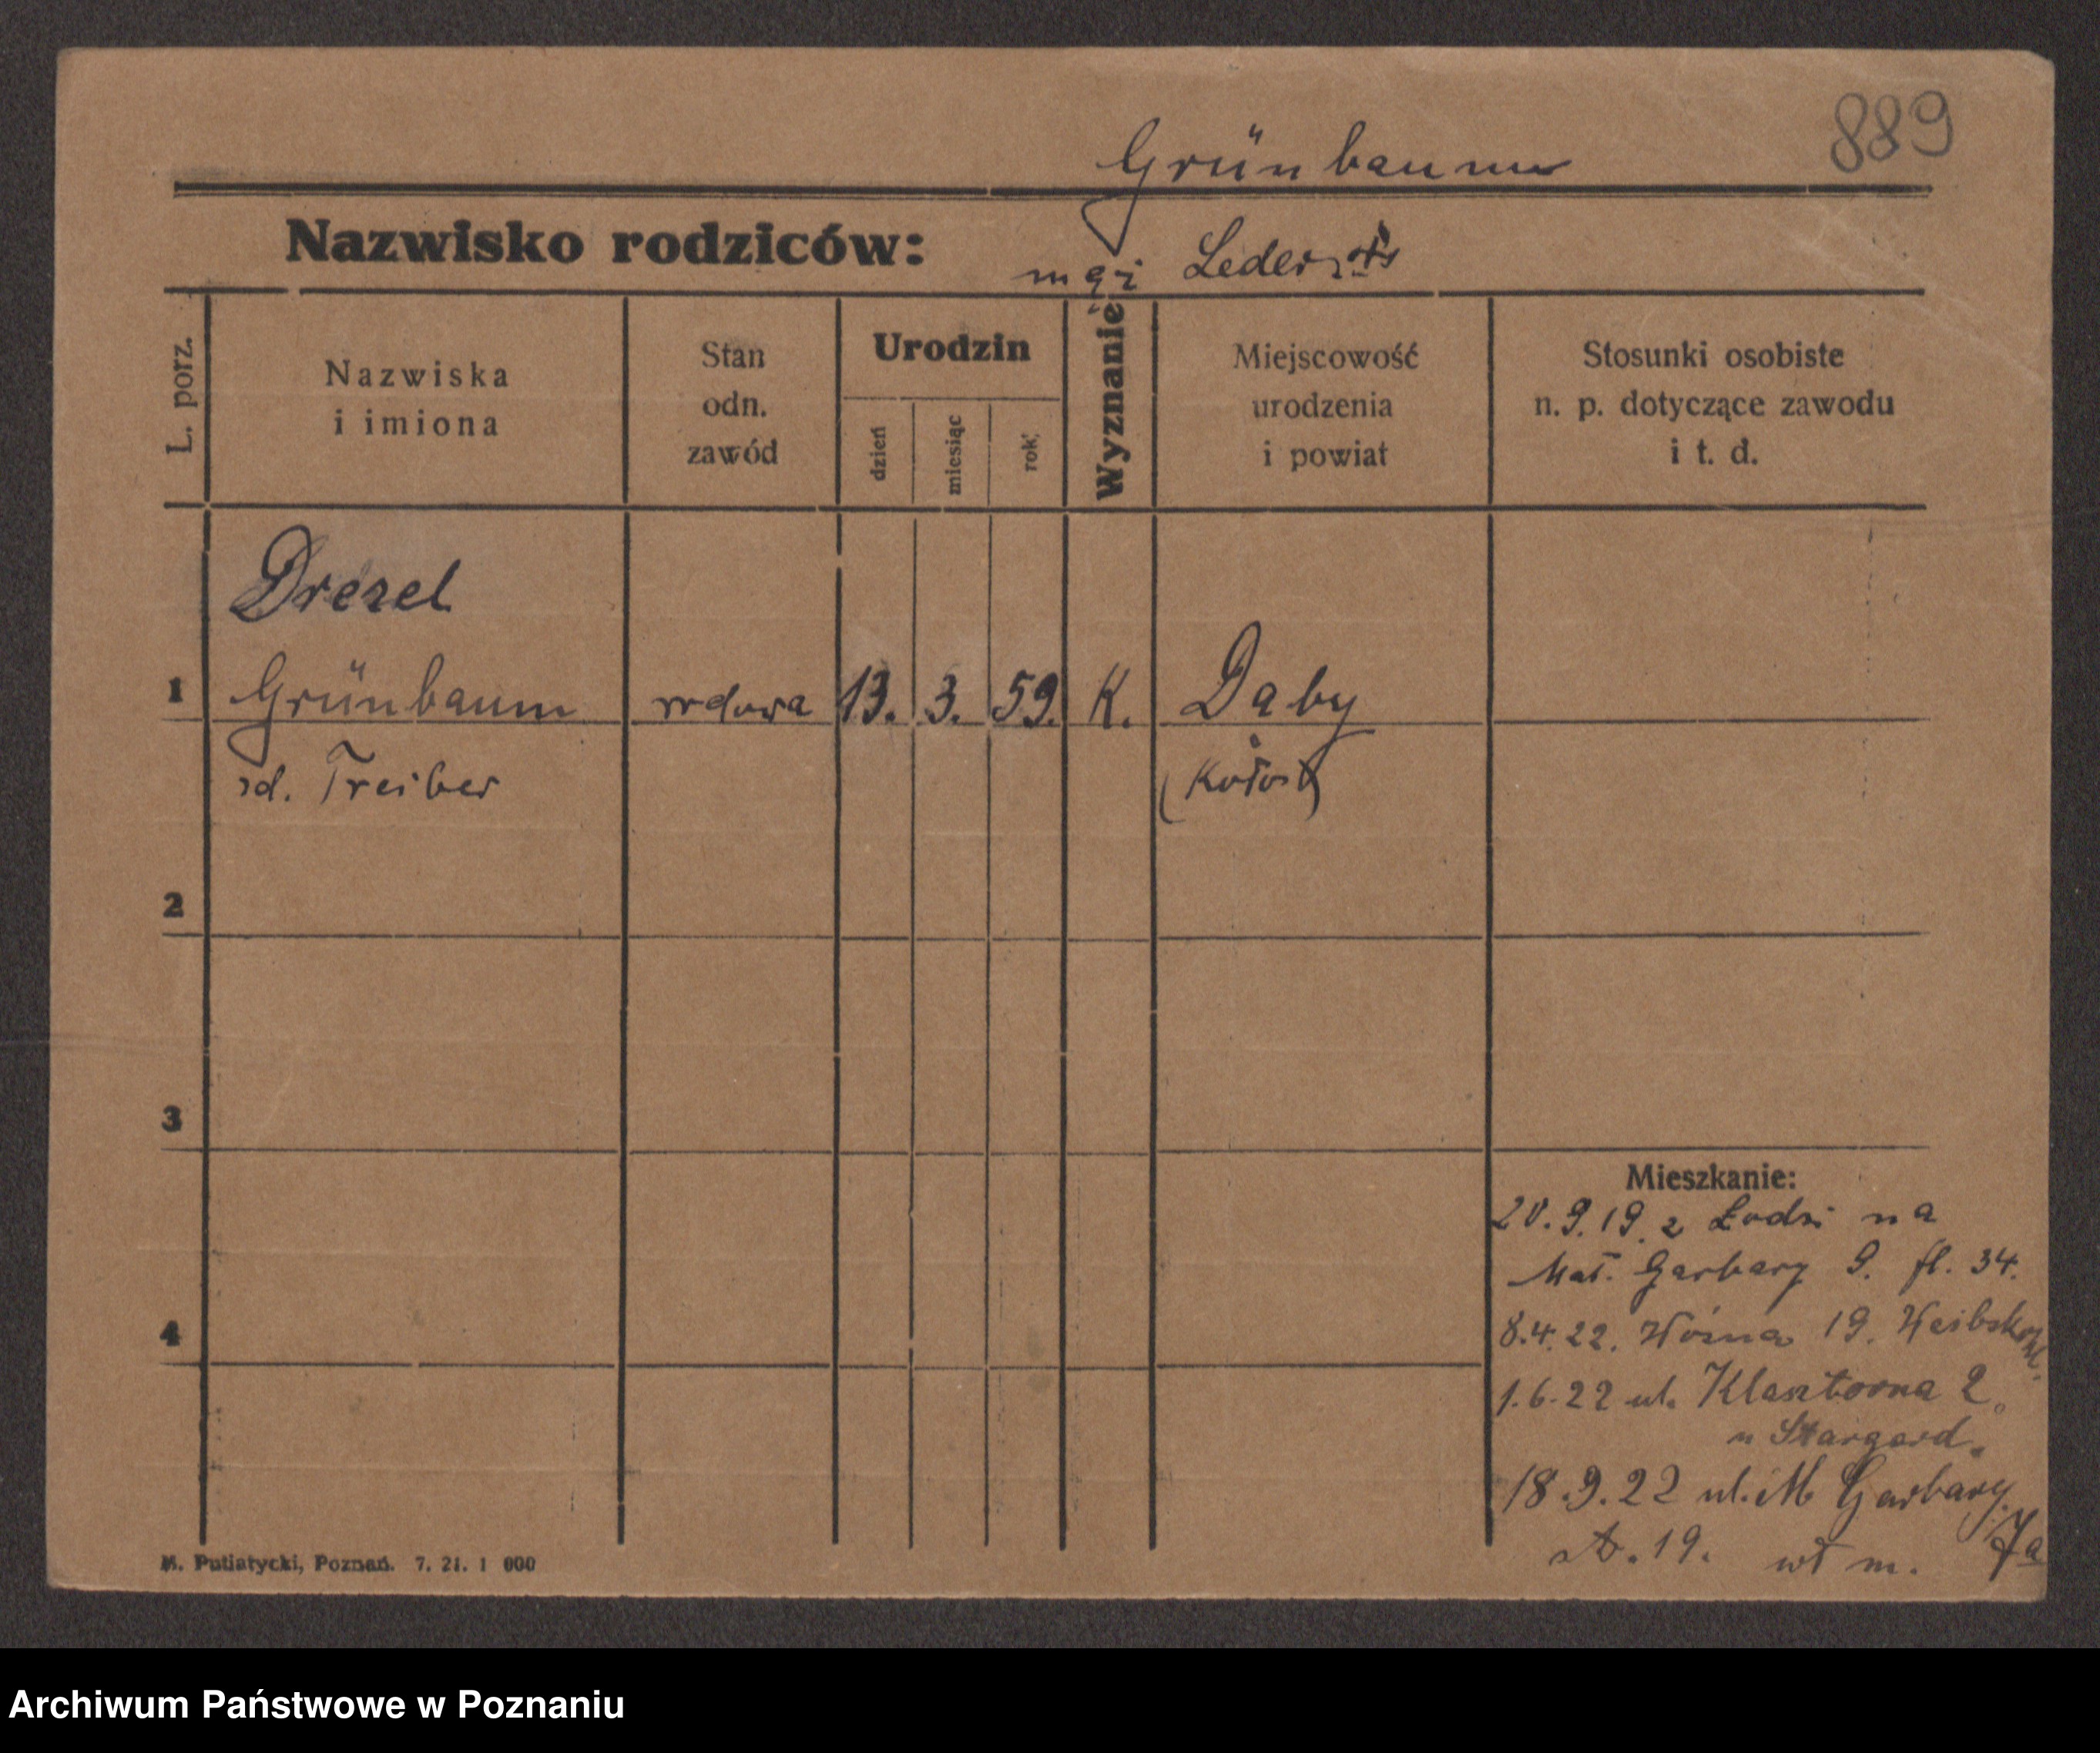 889
Grünbaum
Nazwisko rodziców:
mąż Leder
L. porz.
Nazwiska
i imiona
Stan
odn.
zawód
Urodzin
dzień
miesiąc
rok:
Wyznanie
Miejscowość
urodzenia
i powiat
Stosunki osobiste
n. p. dotyczące zawodu
i t. d.
Drezel
1 Grünbaum wdowa 13. 3. 59. K. Daby
zd. Treiber
2
3
4
Mieszkanie:
20.9.19 z Łodzi na
Mał. Garbary 9. fl. 34.
8.4.22. Woźna 19.
1.6.22 ul. Klasztorna 2
u Stargard.
18.9.22 ul. M Garbary 7a
19. wł m.
M. Putiatycki, Poznań. 7. 21. 1 000
Archiwum Państwowe w Poznaniu